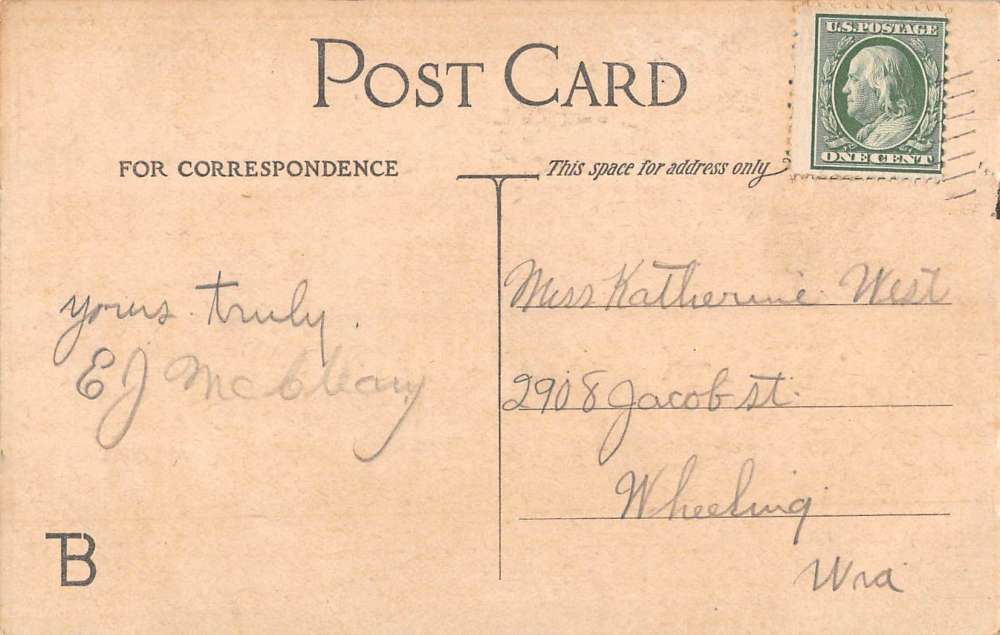 POST CARD
U.S. POSTAGE
ONE CENT
FOR CORRESPONDENCE
This space for address only
yours truly.
E J McCleary
Miss Katherine West
2908 Jacob st.
Wheeling
Wva
TB